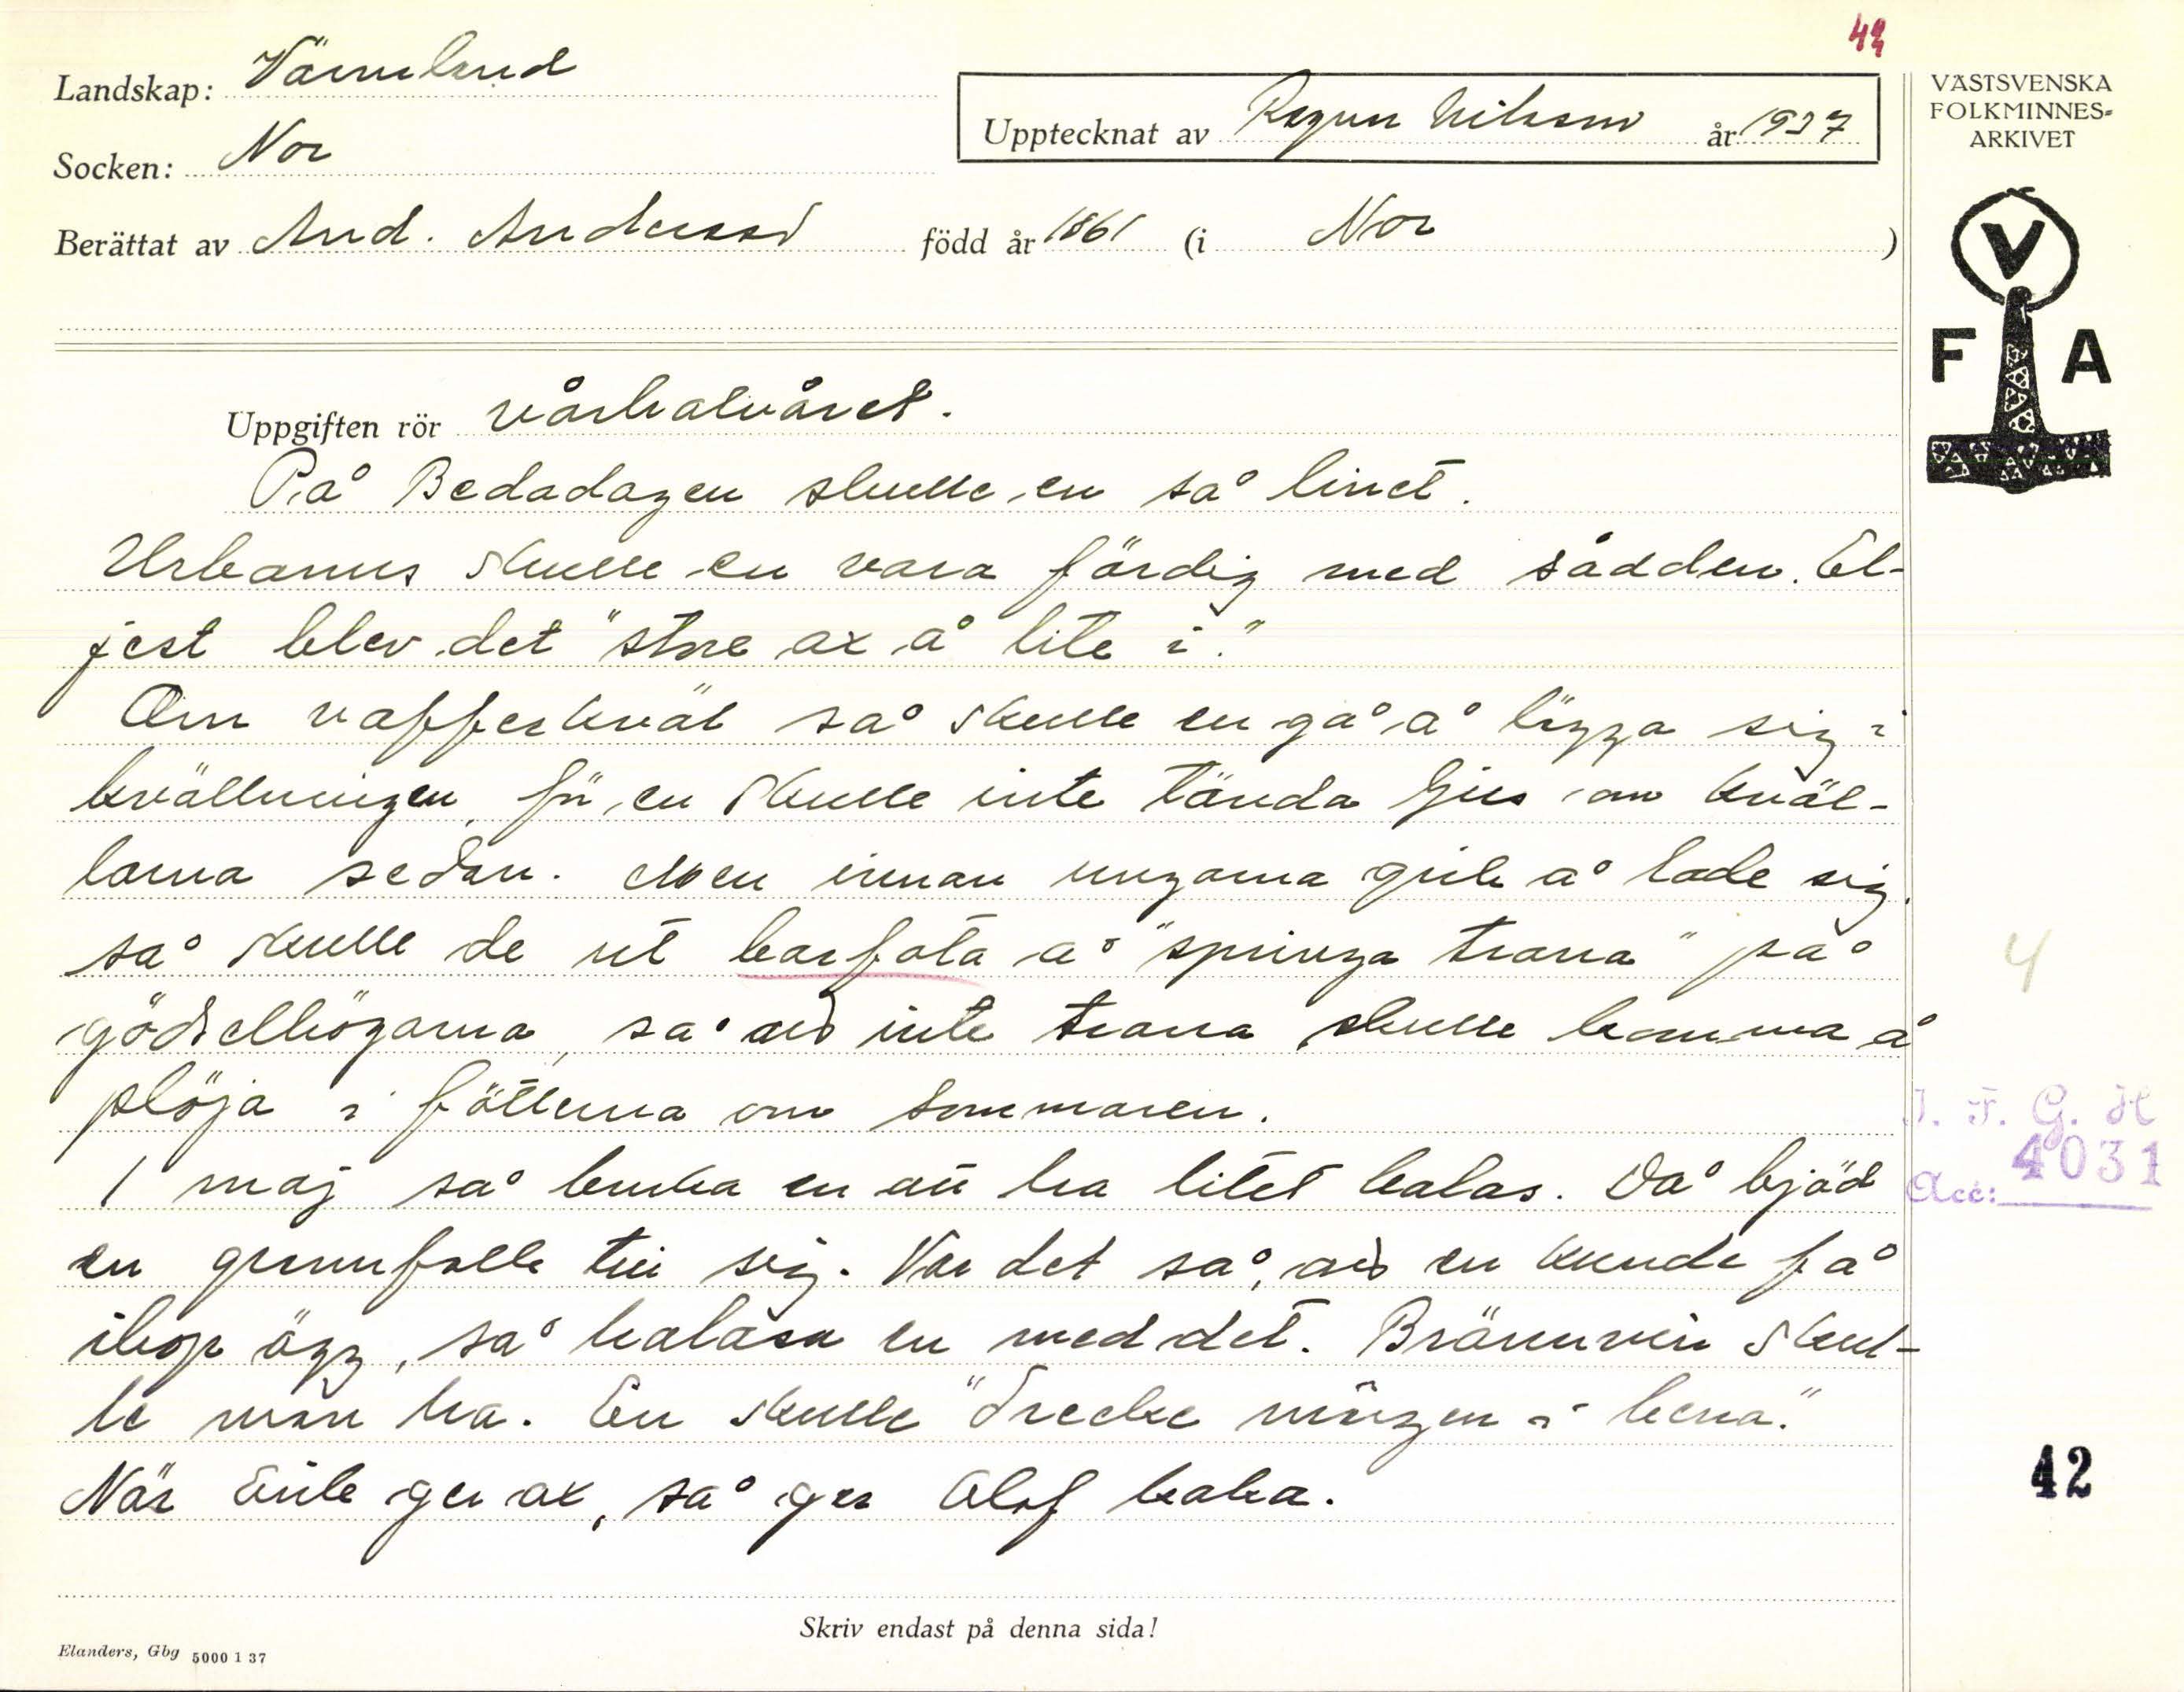 42
Landskap: Värmland
Socken: Nor
Upptecknat av Ragnar Nilsson år 1937
Berättat av And. Andersson född år 1861 (i Nor )
VÄSTSVENSKA
FOLKMINNES-
ARKIVET
V
F A
Uppgiften rör vårhalvåret.
På Bedadagen skulle en så linet.
Urbanus skulle en vara färdig med sådden. El-
jest blev det "store ax å lite i."
Om vafferkväl så skulle en gå å lägga sig i
kvällningen, för en skulle inte tända ljus om kväl-
larna sedan. Men innan ungarna gick å lade sig,
så skulle de ut barfota å "springa trana" på
gödselhögarna, så att inte trana skulle komma å
plöja i fötterna om sommaren.
1 maj så bruka en att ha litet kalas. Då bjöd
en grannfolk till sig. Var det så, att en kunde få
ihop ägg, så kalasa en med det. Brännvin skul-
le man ha. En skulle "drecke märgen i bena."
När Erik ger ax, så ger Olof kaka.
4
I. F. G. H
Acc: 4031
42
Skriv endast på denna sida!
Elanders, Gbg 5000 1 37